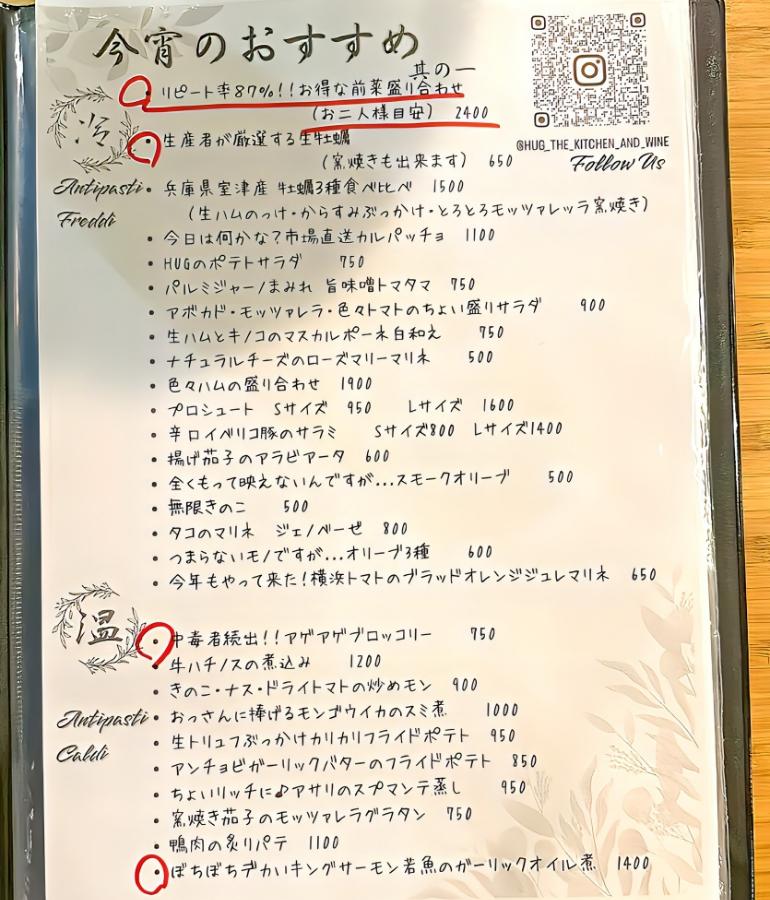 今宵のおすすめ
其の一
リピート率87%!!お得な前菜盛り合わせ
(お二人様目安) 2400
冷
生産者が厳選する生牡蠣
(窯焼きも出来ます) 650
@HUG_THE_KITCHEN_AND_WINE
Follow Us
Antipasti
Freddi
兵庫県室津産 牡蠣3種食べ比べ 1500
(生ハムのっけ・からすみぶっかけ・とろとろモッツァレッラ窯焼き)
今日は何かな?市場直送カルパッチョ 1100
HUGのポテトサラダ 750
パルミジャーノまみれ 旨味噌トマタマ 750
アボカド・モッツァレラ・色々トマトのちょい盛りサラダ 900
生ハムとキノコのマスカルポーネ白和え 750
ナチュラルチーズのローズマリーマリネ 500
色々ハムの盛り合わせ 1900
プロシュート Sサイズ 950 Lサイズ 1600
辛口イベリコ豚のサラミ Sサイズ800 Lサイズ1400
揚げ茄子のアラビアータ 600
全くもって映えないんですが...スモークオリーブ 500
無限きのこ 500
タコのマリネ ジェノベーゼ 800
つまらないモノですが...オリーブ3種 600
今年もやって来た!横浜トマトのブラッドオレンジジュレマリネ 650
温
中毒者続出!!アゲアゲブロッコリー 750
牛ハチノスの煮込み 1200
きのこ・ナス・ドライトマトの炒めモン 900
Antipasti
Caldi
おっさんに捧げるモンゴウイカのスミ煮 1000
生トリュフぶっかけカリカリフライドポテト 950
アンチョビガーリックバターのフライドポテト 850
ちょいリッチに♪アサリのスプマンテ蒸し 950
窯焼き茄子のモッツァレラグラタン 750
鴨肉の炙りパテ 1100
ぼちぼちデカいキングサーモン若魚のガーリックオイル煮 1400